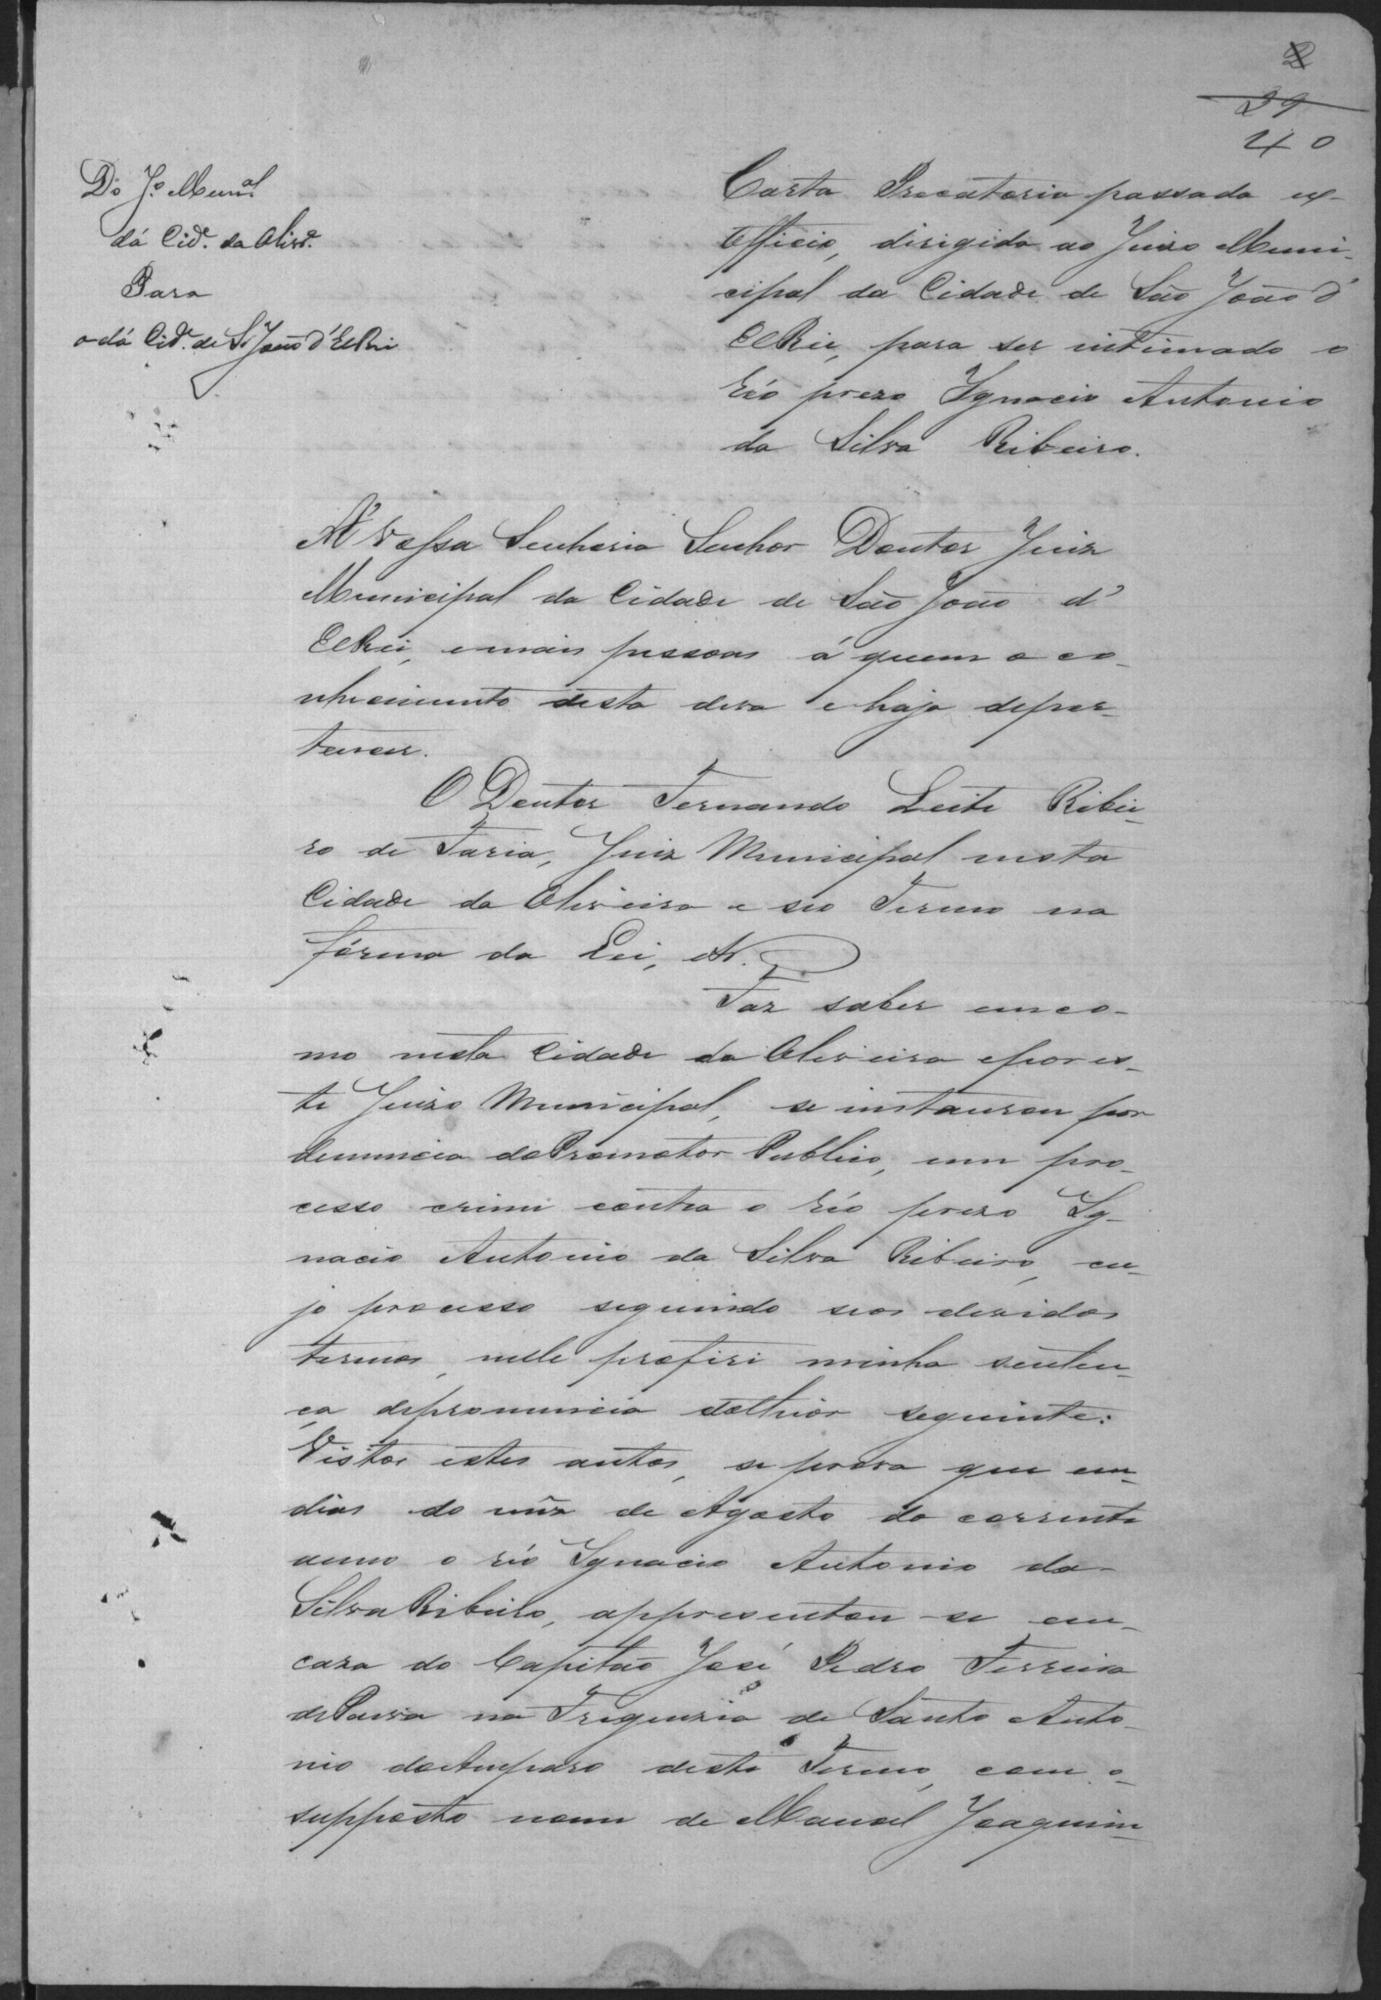 2
39
40
Do Jo. Munal.
dá Cide. da Olivra.
Para
o dá Cide. de S. João d'ElRei
Carta Precatoria passada ex-
Officio, dirigida ao Juizo Muni-
cipal da Cidade de São João d'
ElRei, para ser intimado o
réo prezo Ignacio Antonio
da Silva Ribeiro.
A' Vossa Senhoria Senhor Doutor Juiz
Municipal da Cidade de São João d'
ElRei, e mais pessoas á quem o co-
nhecimento desta deva e haja deper-
tencer.
O Doutor Fernando Leite Ribei-
ro de Faria, Juiz Municipal nesta
Cidade da Oliveira e seo Termo na
fórma da Lei, etc.
Faz saber em co-
mo nesta Cidade da Oliveira epor es-
te Juizo Municipal, se instaurou por
denuncia do Promotor Publico, um pro-
cesso crime contra o réo prezo Ig-
nacio Antonio da Silva Ribeiro, cu-
jo processo seguindo seos devidos
termos, nelle proferi minha senten-
ça depronuncia dotheor seguinte:
Vistos estes autos, se prova que em
dias do mez de Agosto do corrente
anno o réo Ignacio Antonio da
Silva Ribeiro, appresentou-se em
caza do Capitão José Pedro Ferreira
dePaiva na Freguezia de Santo Anto-
nio doAmparo deste Termo, com o
supposto nome de Manoel Joaquim